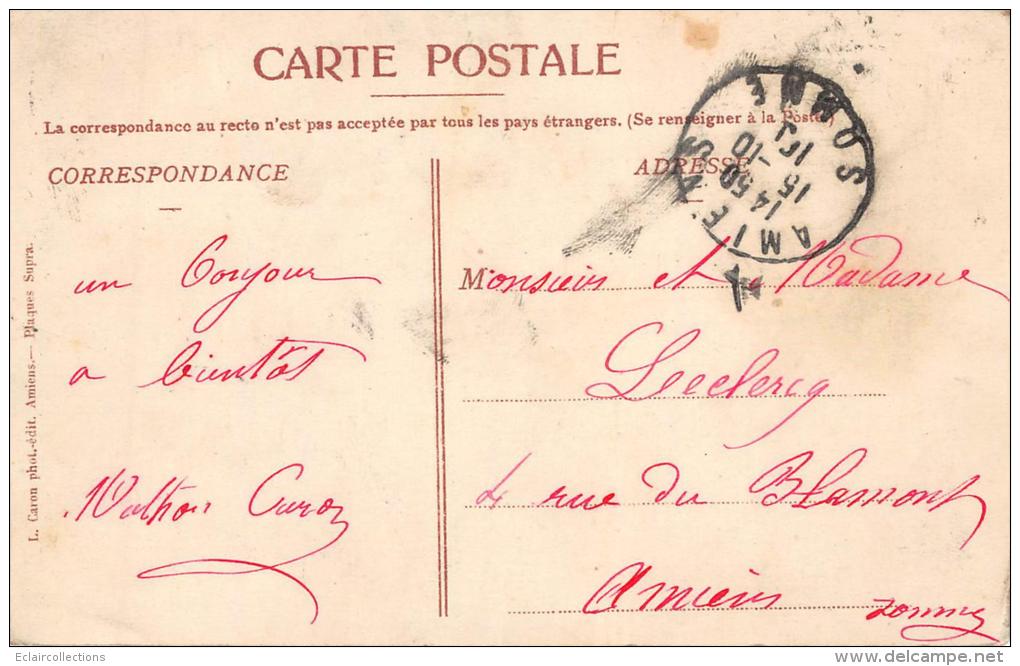 CARTE POSTALE
La correspondance au recto n'est pas acceptée par tous les pays étrangers. (Se renseigner à la Poste)
CORRESPONDANCE
ADRESSE
AMIENS
SOMME
14 50
15 -10
10
un Bonjour
a bientôt
Caron
Monsieur et Madame
Leclercq
4 rue du Blamont
Amiens Somme
L. Caron phot.-édit. Amiens.— Plaques Supra.
Eclaircollections
www.delcampe.net